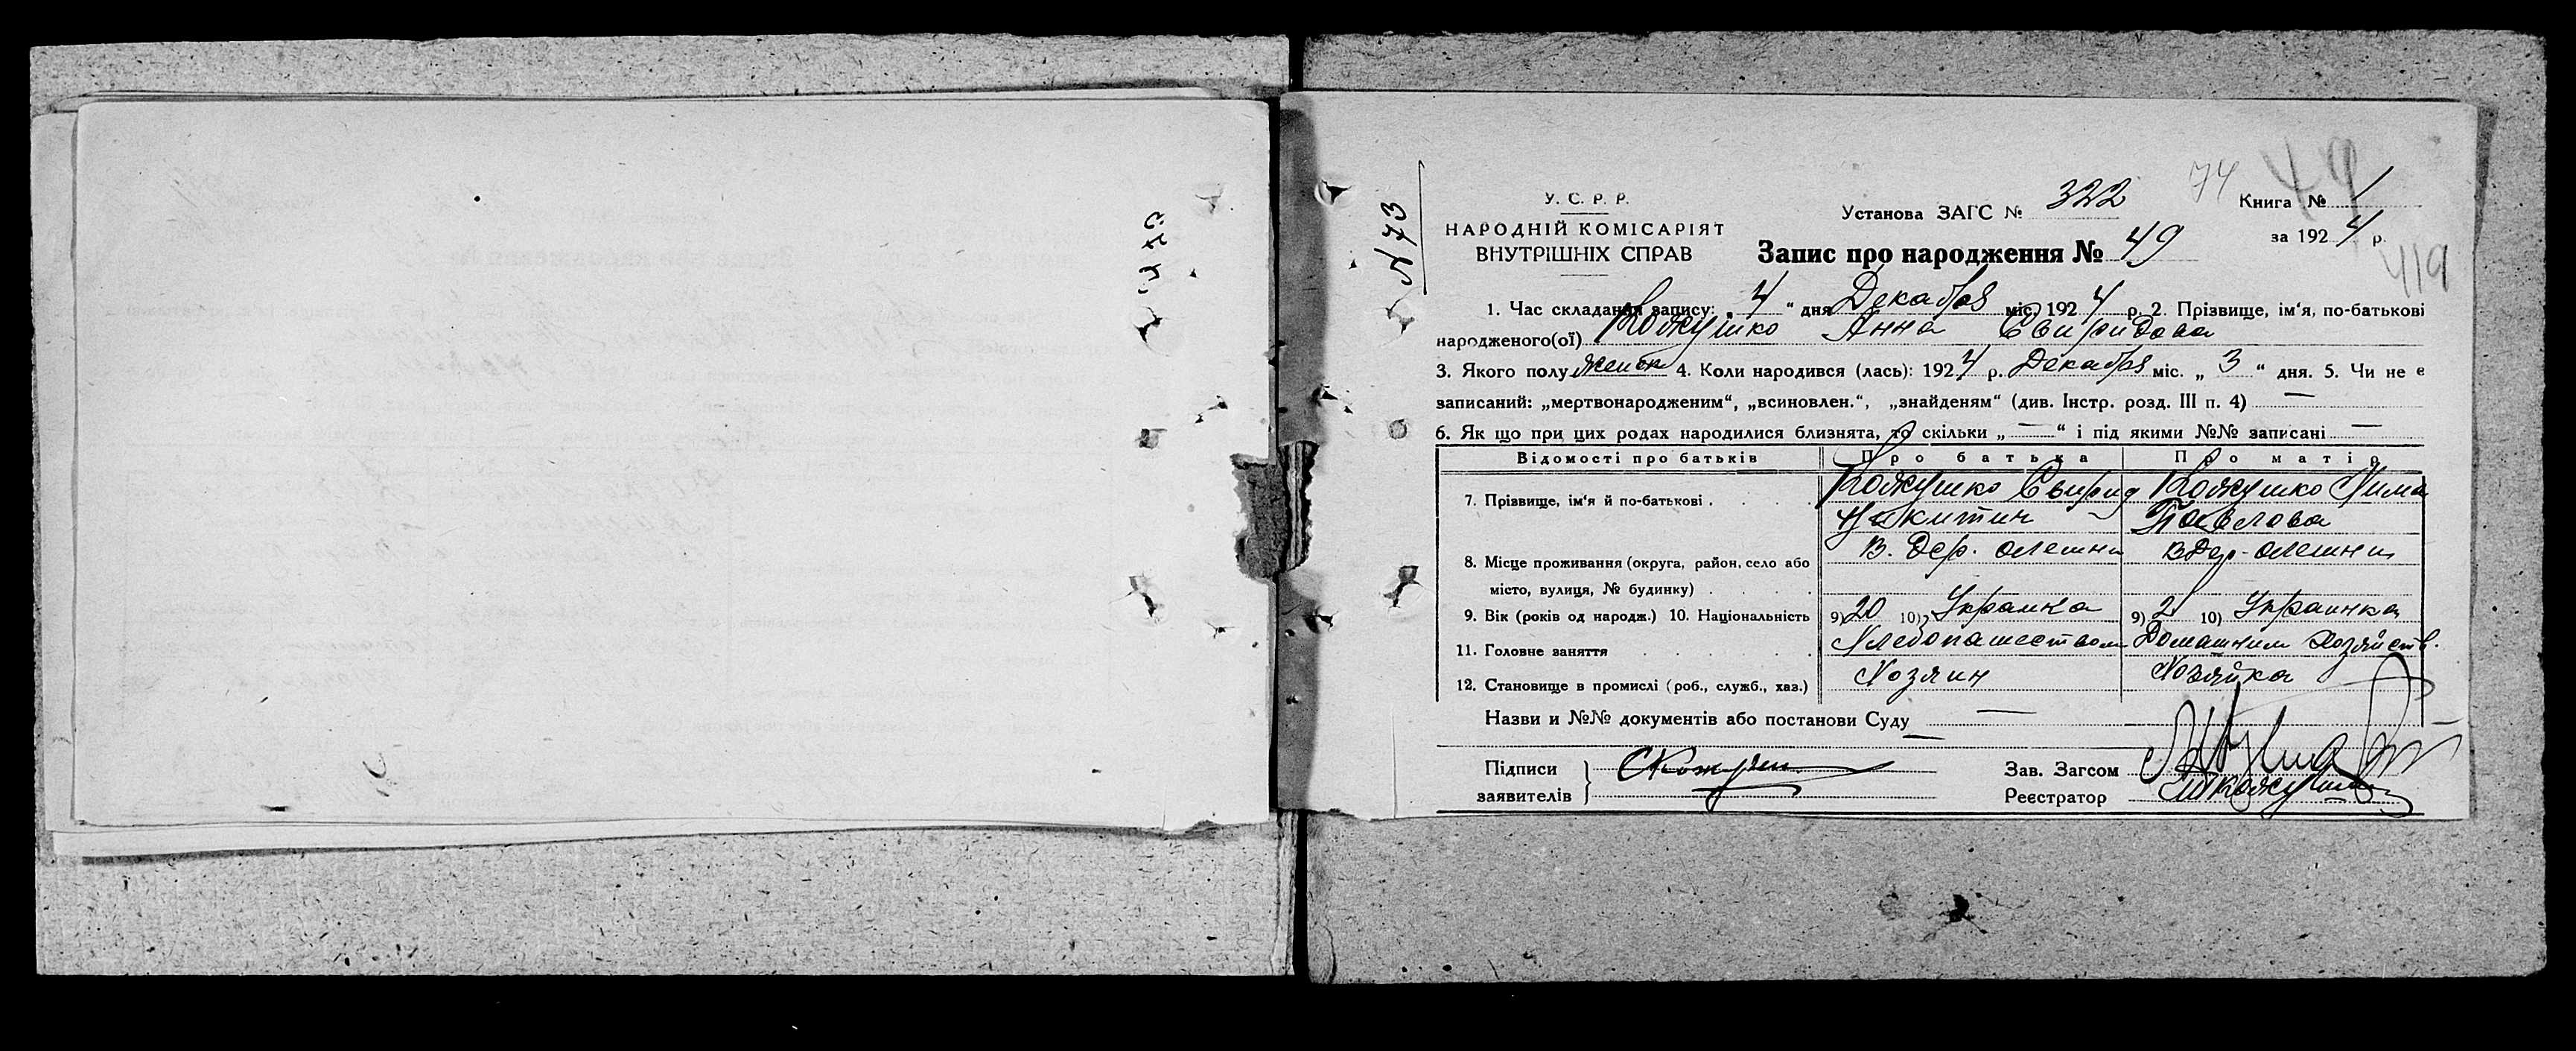 N 73
74
49
У. С. Р. Р.
НАРОДНІЙ КОМІСАРІЯТ
ВНУТРІШНІХ СПРАВ
Установа ЗАГС № 322
Книга № 1
за 1924 р.
419
Запис про народження № 49
1. Час складання запису: „4“ дня Декабря міс. 1924 р. 2. Прізвище, ім'я, по-батькові
народженого(ої) Кожушко Анна Свиридова
3. Якого полу женск 4. Коли народився (лась): 1924 р. Декабря міс. „3“ дня. 5. Чи не є
записаний: „мертвонародженим“, „всиновлен.“, „знайденям“ (див. Інстр. розд. III п. 4) —
6. Як що при цих родах народилися близнята, то скільки „—“ і під якими №№ записані —
Відомості про батьків Про батька Про матір
7. Прізвище, ім'я й по-батькові . . . Кожушко Свирид Кожушко
Никитин Павлова
8. Місце проживання (округа, район, село або В. Дер. Олешни В Дер. Олешни
місто, вулиця, № будинку) . . . .
9. Вік (років од народж.) 10. Національність 9) 20 10) Украинка 9) 2 10) Украинка
11. Головне заняття . . . . . Хлебопашеством Домашним Хозяйств.
12. Становище в промислі (роб., служб., хаз.) Хозяин Хозяйка
Назви и №№ документів або постанови Суду —
Підписи
заявителів
Зав. Загсом
Реєстратор